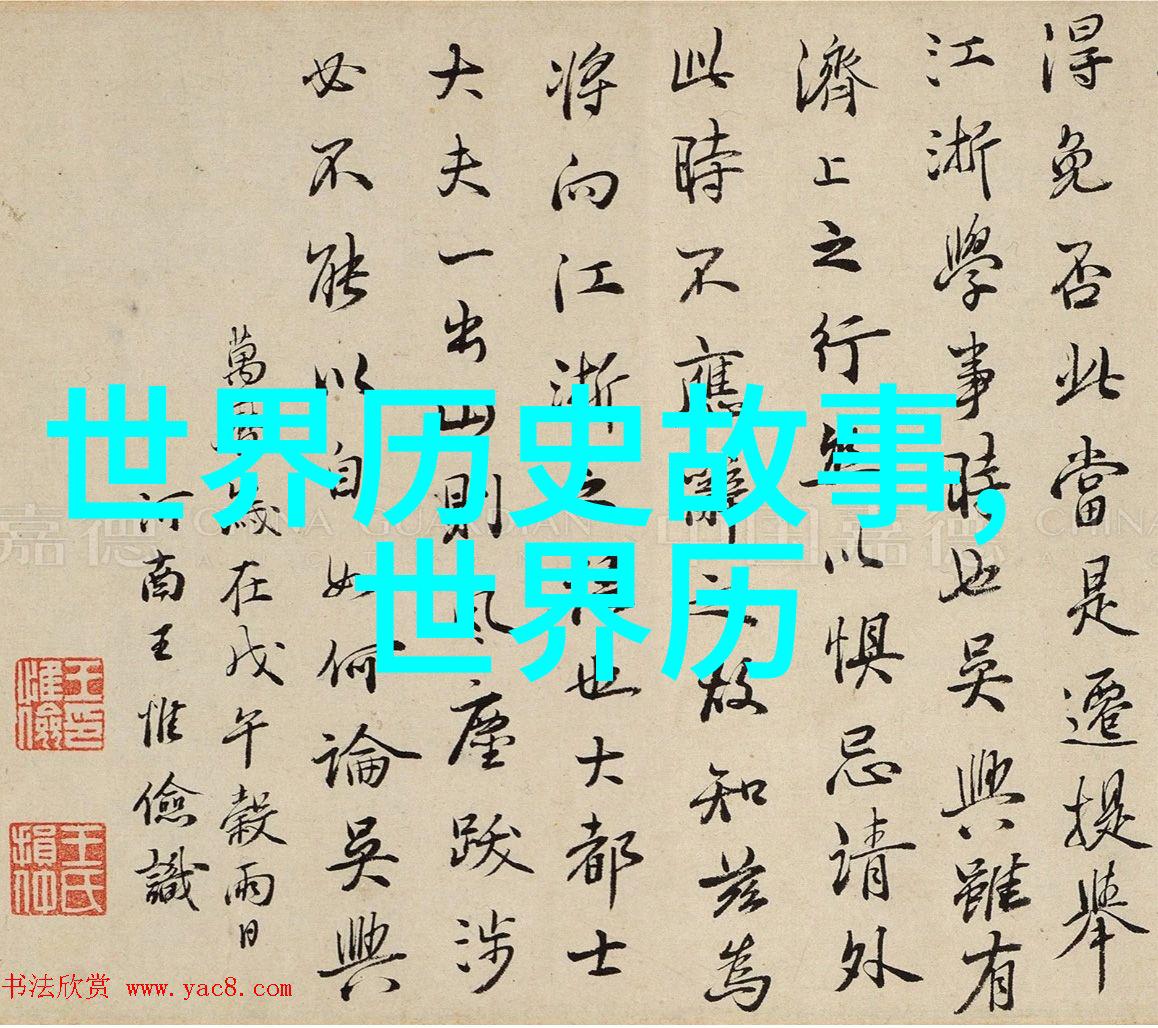 得免否此當是遷提舉
江浙學事時也吳興雖有
濟上之行無以懼忌請外
此時不應辭之故知茲為
将向江浙之也大都士
大夫一出山則風塵跋涉
必不能以自如何論吳興
萬曆歲在戊午穀雨日
河南王惟儉識
世界历史故事,
世界历
嘉德 CHINA GUARDIAN 中国嘉德 CHINA
书法欣赏 www.yac8.com